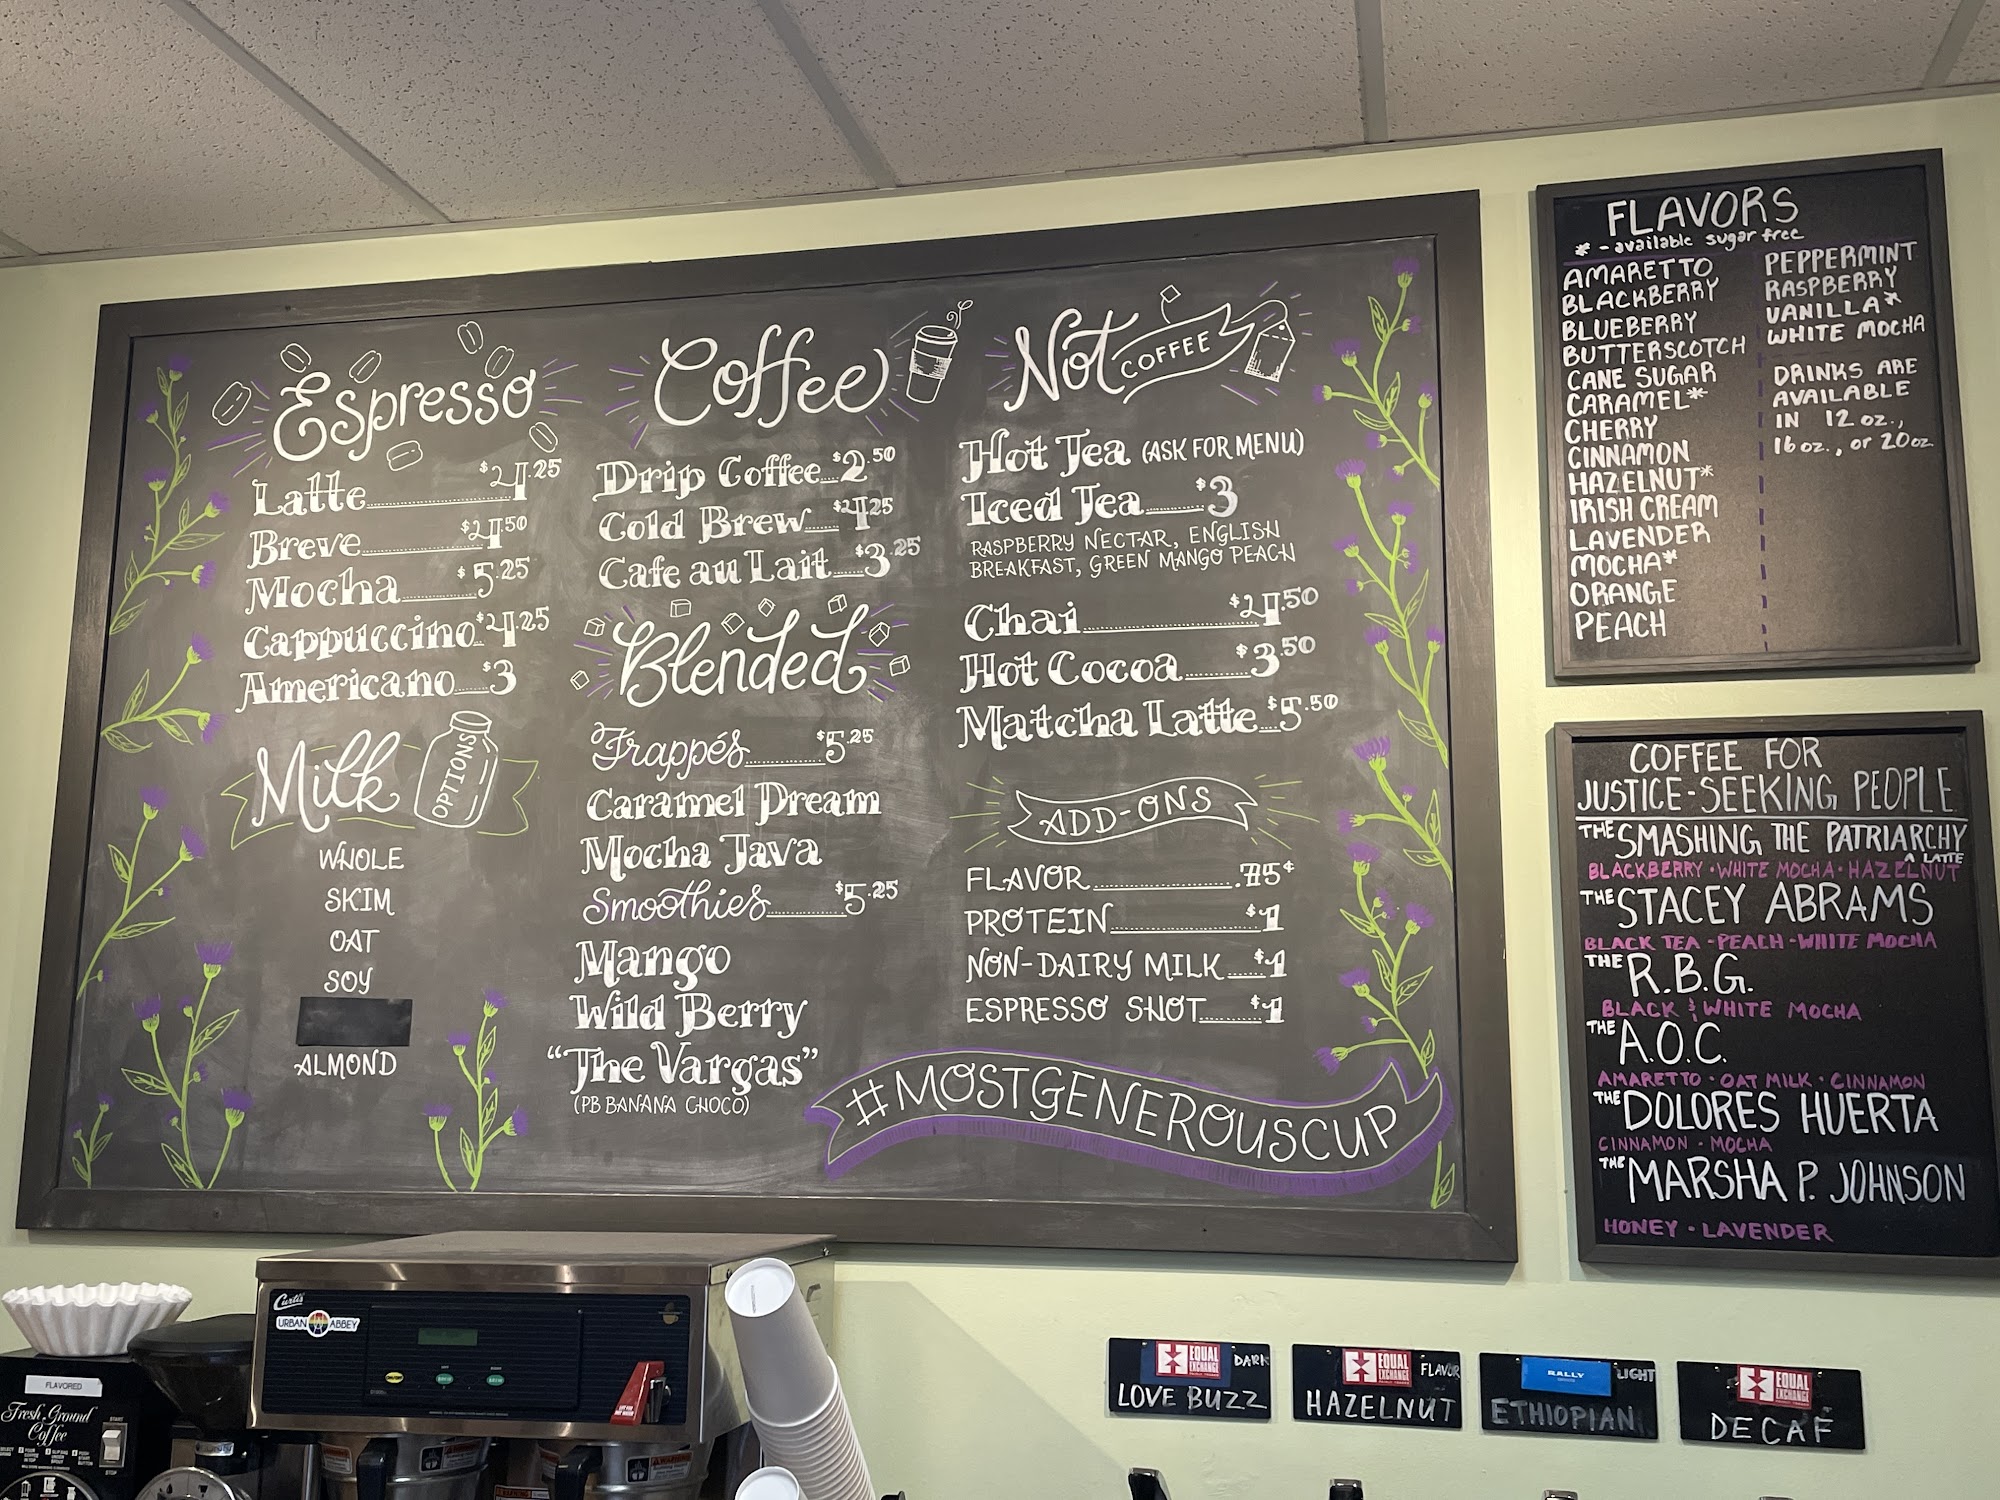 Espresso
Latte $4.25
Breve $4.50
Mocha $5.25
Cappuccino $4.25
Americano $3
Milk OPTIONS
WHOLE
SKIM
OAT
SOY
ALMOND
Coffee
Drip Coffee $2.50
Cold Brew $4.25
Cafe au Lait $3.25
Blended
Frappés $5.25
Caramel Dream
Mocha Java
Smoothies $5.25
Mango
Wild Berry
"The Vargas"
(PB BANANA CHOCO)
Not COFFEE
Hot Tea (ASK FOR MENU)
Iced Tea $3
RASPBERRY NECTAR, ENGLISH
BREAKFAST, GREEN MANGO PEACH
Chai $4.50
Hot Cocoa $3.50
Matcha Latte $5.50
ADD-ONS
FLAVOR .75¢
PROTEIN $1
NON-DAIRY MILK $1
ESPRESSO SHOT $1
#MOSTGENEROUSCUP
FLAVORS
* - available sugar free
AMARETTO
BLACKBERRY
BLUEBERRY
BUTTERSCOTCH
CANE SUGAR
CARAMEL*
CHERRY
CINNAMON
HAZELNUT*
IRISH CREAM
LAVENDER
MOCHA*
ORANGE
PEACH
PEPPERMINT
RASPBERRY
VANILLA*
WHITE MOCHA
DRINKS ARE
AVAILABLE
IN 12 oz.,
16 oz., or 20 oz
COFFEE FOR
JUSTICE-SEEKING PEOPLE
THE SMASHING THE PATRIARCHY
A LATTE
BLACKBERRY · WHITE MOCHA · HAZELNUT
THE STACEY ABRAMS
BLACK TEA - PEACH - WHITE MOCHA
THE R.B.G.
BLACK & WHITE MOCHA
THE A.O.C.
AMARETTO · OAT MILK · CINNAMON
THE DOLORES HUERTA
CINNAMON - MOCHA
THE MARSHA P. JOHNSON
HONEY - LAVENDER
Curtis
URBAN ABBEY
FLAVORED
Fresh Ground
Coffee
START
STOP
EQUAL
EXCHANGE
DARK
LOVE BUZZ
EQUAL
EXCHANGE
FLAVOR
HAZELNUT
RALLY
LIGHT
ETHIOPIAN
EQUAL
EXCHANGE
DECAF